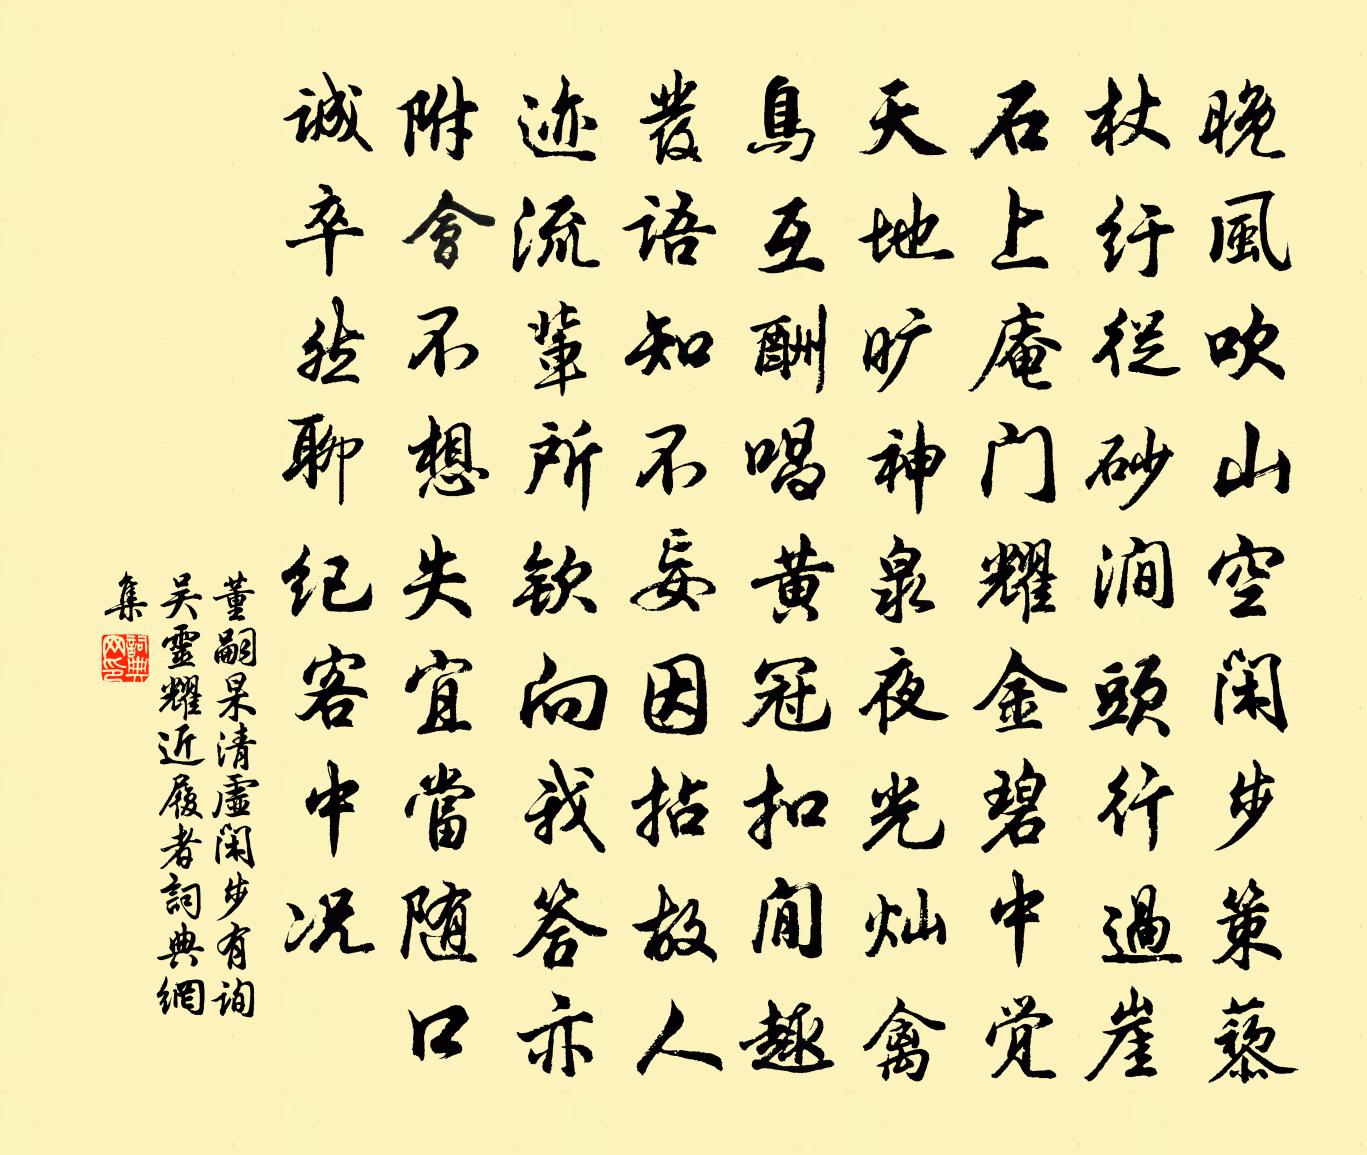 晚風吹山空闲步策藜
杖纡從砂澗頭行過崖
石上庵门耀金碧中觉
天地旷神泉夜光灿禽
鳥互酬唱黄冠扣閒趣
發語知不妄因拈故人
迹流輩所欽向我答亦
附會不想失宜當随口
诚卒然聊纪客中况
董嗣杲清虛闲步有询
吴靈耀近履者詞典網
集
詞典
网印